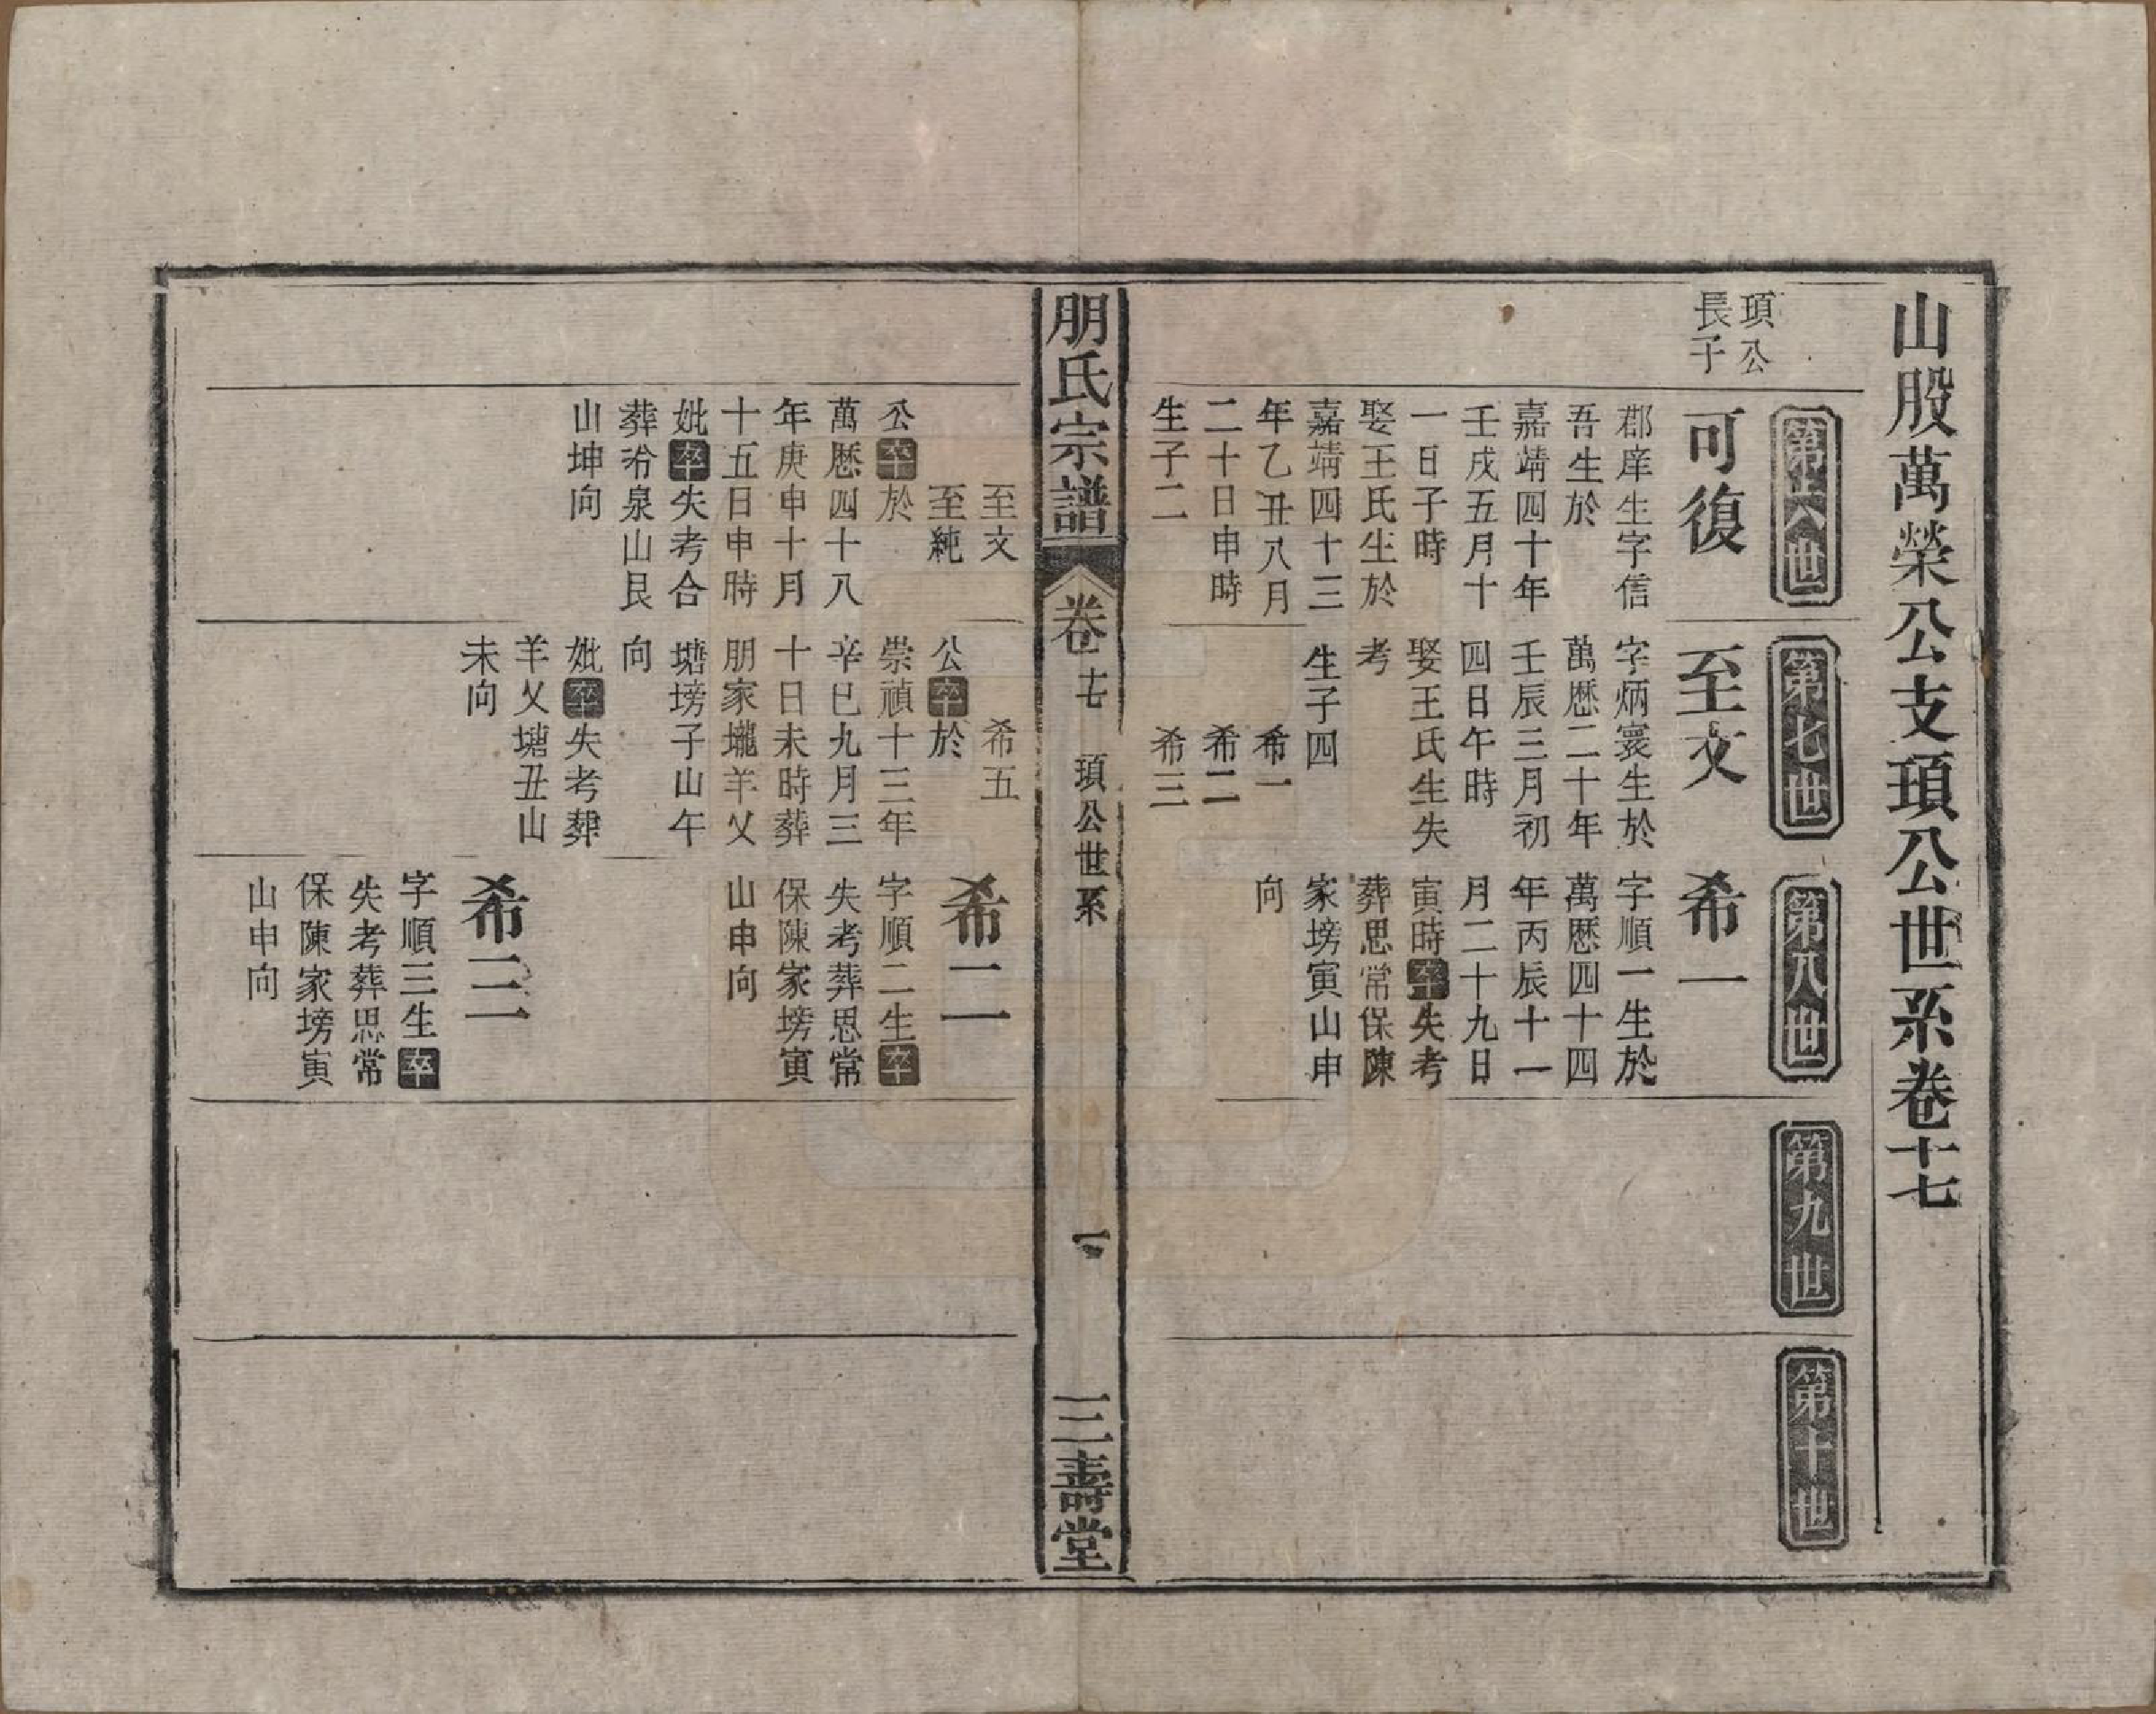 山股萬榮公支頊公世系卷十七
第六世
第七世
第八世
第九世
第十世
頊公
長子
可復
郡庠生字信
吾生於
嘉靖四十年
壬戌五月十
一日子時
娶王氏生於
嘉靖四十三
年乙丑八月
二十日申時
生子二
至文
至純
公卒於
萬厯四十八
年庚申十月
十五日申時
妣卒失考合
葬冷泉山艮
山坤向
至文
字炳寰生於
萬厯二十年
壬辰三月初
四日午時
娶王氏生失
考
生子四
希一
希二
希三
希五
公卒於
崇禎十三年
辛巳九月三
十日未時葬
朋家壠羊乂
塘塝子山午
向
妣卒失考葬
羊乂塘丑山
未向
希一
字順一生於
萬厯四十四
年丙辰十一
月二十九日
寅時卒失考
葬思常保陳
家塝寅山申
向
希二
字順二生卒
失考葬思常
保陳家塝寅
山申向
希三
字順三生卒
失考葬思常
保陳家塝寅
山申向
朋氏宗譜
卷十七
頊公世系
一
三壽堂